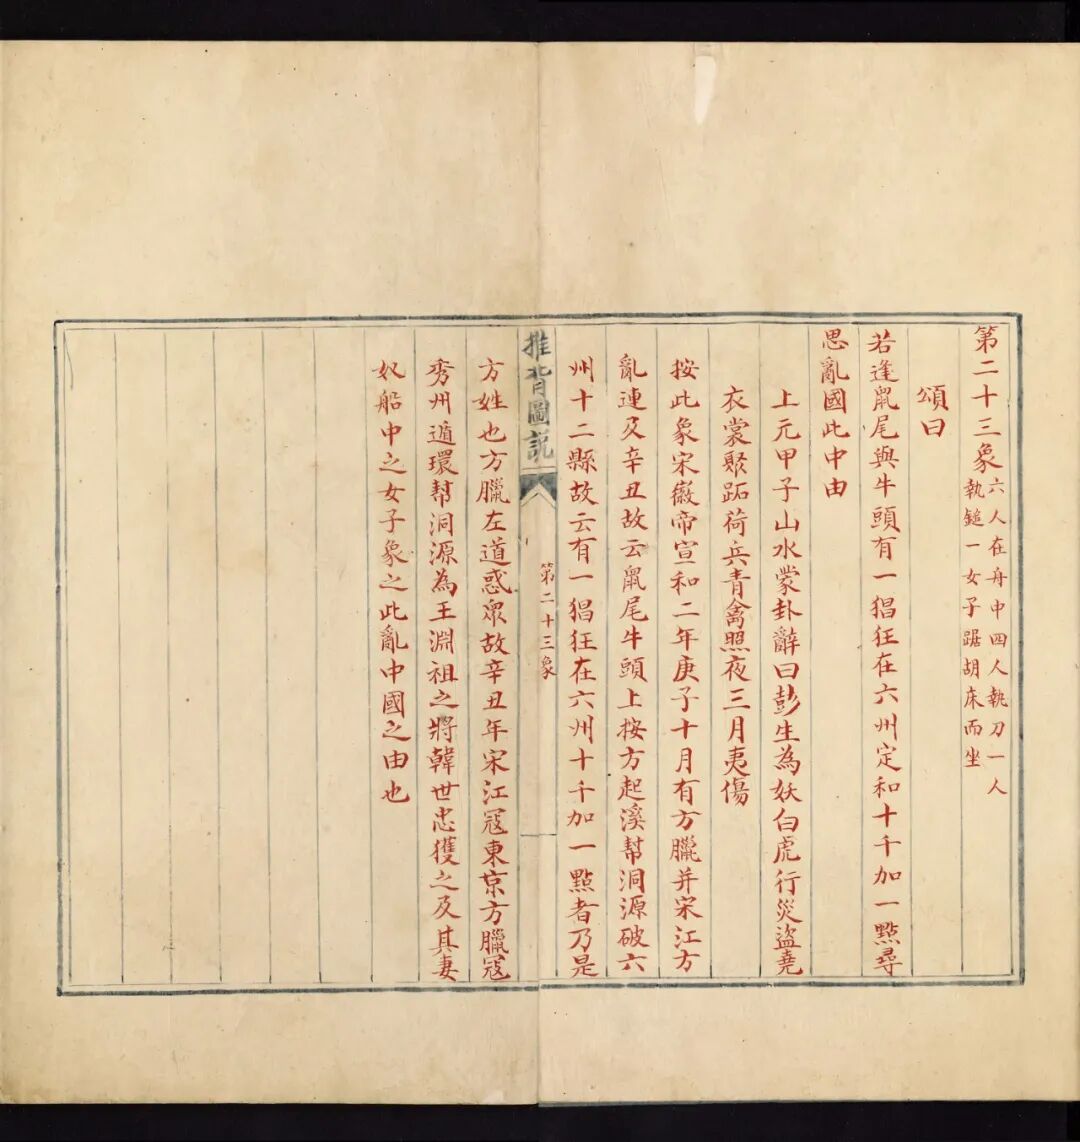 第二十三象 六人在舟中四人執刀一人
執鎚一女子踞胡床而坐
頌曰
若逢鼠尾與牛頭有一猖狂在六州定和十千加一點尋
思亂國此中由
上元甲子山水蒙卦辭曰彭生為妖白虎行災盜堯
衣裳聚跖荷兵青禽照夜三月夷傷
按此象宋徽帝宣和二年庚子十月有方臘并宋江方
亂連及辛丑故云鼠尾牛頭上按方起溪幫洞源破六
州十二縣故云有一猖狂在六州十千加一點者乃是
推背圖說
第二十三象
方姓也方臘左道惑眾故辛丑年宋江寇東京方臘寇
秀州遁環幫洞源為王淵祖之將韓世忠獲之及其妻
奴船中之女子象之此亂中國之由也